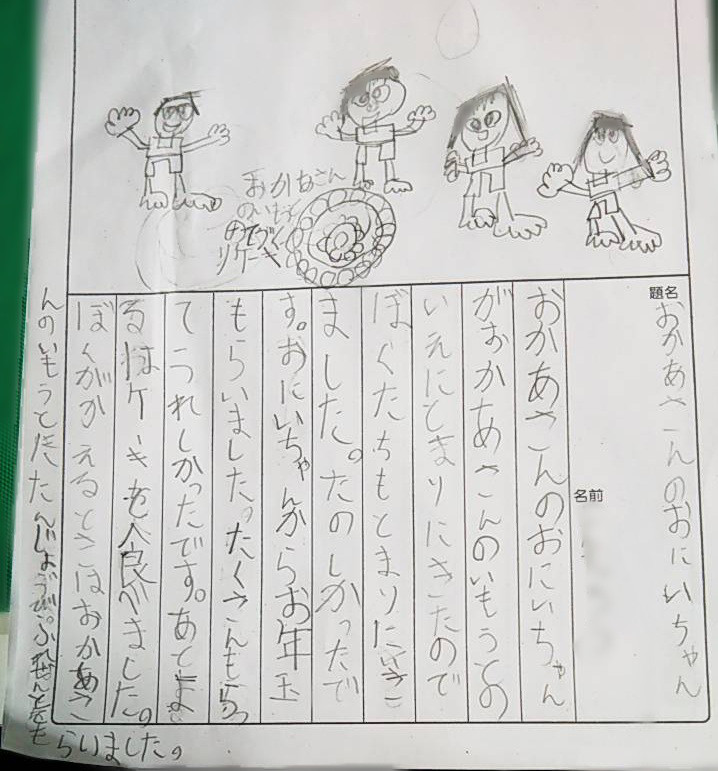 おかあさん
のいもうと
のてづく
りケーキ
題名
おかあさんのおにいちゃん
名前
おかあさんのおにいちゃん
がおかあさんのいもうとの
いえにとまりにきたので
ぼくたちもとまりにいき
ました。たのしかったで
す。おにいちゃんからお年玉
もらいました。たくさんもらっ
てうれしかったです。あとよ
るはケーキを食べました。
ぼくがかえるときはおかあさ
んのいもうとたんじょうびぷれぜんとをも
らいました。